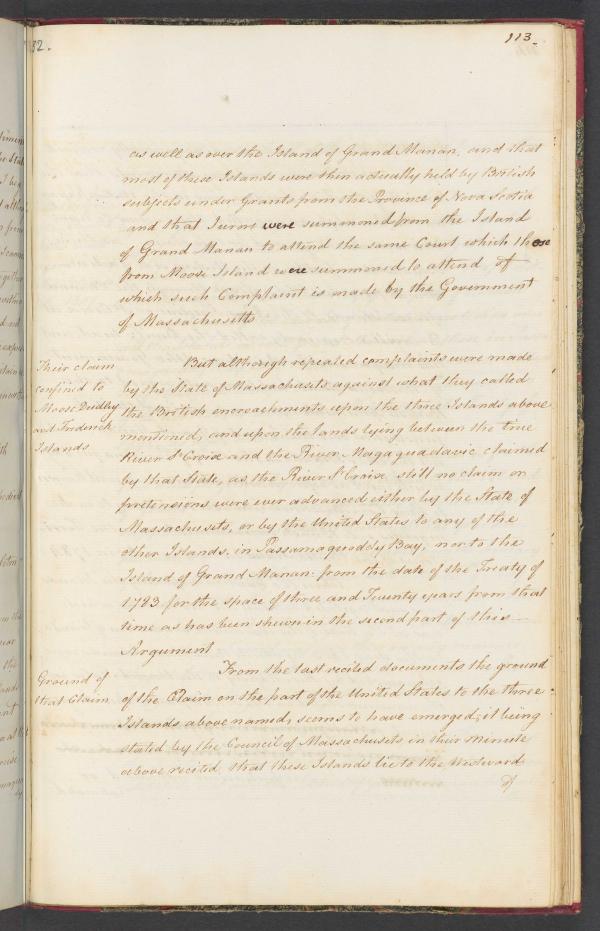 32.
113.
as well as over the Island of Grand Manan, and that
most of these Islands were then actually held by British
subjects under Grants from the Province of Nova Scotia
and that Jurors were summoned from the Island
of Grand Manan to attend the same Court which those
from Moose Island were summoned to attend of
which such Complaint is made by the Government
of Massachusetts
Their claim
confined to
Moose Dudley
and Frederick
Islands
But although repeated complaints were made
by the State of Massachusets against what they called
the British encroachments upon the three Islands above
mentioned, and upon the lands lying between the true
River St Croix and the River Magaguadavic claimed
by that State, as the River St Croix still no claim or
pretensions were ever advanced either by the State of
Massachusets, or by the United States to any of the
other Islands, in Passamaquoddy Bay, nor to the
Island of Grand Manan: from the date of the Treaty of
1783 for the space of three and Twenty years from that
time as has been shewn in the second part of this
Argument
Ground of
that Claim
From the last recited documents the ground
of the Claim on the part of the United States to the three
Islands above named, seems to have emerged; it being
stated by the Council of Massachusets in their minute
above recited that these Islands lie to the Westward
of